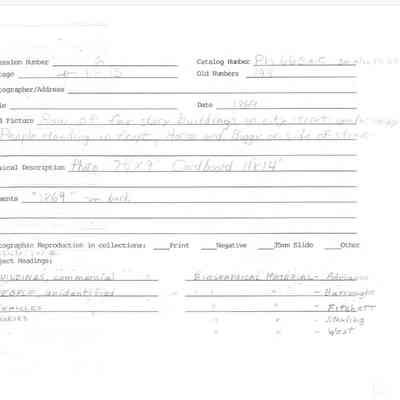 ession Number 2 Catalog Number
age 4-1-15 Old Numbers 193
tographer/Address
le Date 1864
d Picture Row of four story buildings on city street
People standing in front, Horse and Buggy on side of street
ical Description Photo 7"X9" Cardboard 11X14"
ents "1864" on back
tographic Reproduction in collections: Print Negative 35mm Slide Other
ject Headings:
UILDINGS, commercial BIOGRAPHICAL MATERIAL - Adriance
PEOPLE, unidentified " " - Burroughs
" " - Fitchett
" " - Sterling
" " - West